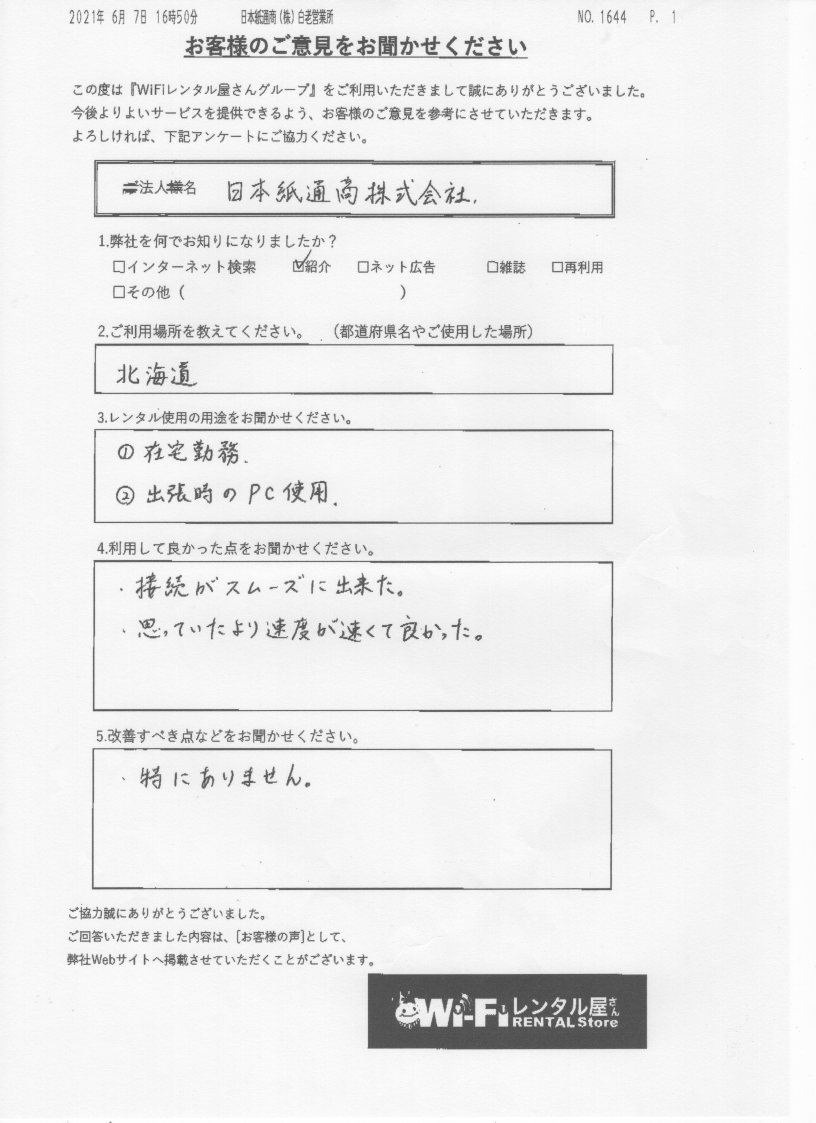 2021年 6月 7日 16時50分 日本紙通商(株)白老営業所 NO.1644 P. 1
お客様のご意見をお聞かせください
この度は『WiFiレンタル屋さんグループ』をご利用いただきまして誠にありがとうございました。
今後よりよいサービスを提供できるよう、お客様のご意見を参考にさせていただきます。
よろしければ、下記アンケートにご協力ください。
ご法人様名 日本紙通商株式会社.
1.弊社を何でお知りになりましたか？
□インターネット検索 ☑紹介 □ネット広告 □雑誌 □再利用
□その他（ ）
2.ご利用場所を教えてください。 （都道府県名やご使用した場所）
北海道
3.レンタル使用の用途をお聞かせください。
① 在宅勤務.
② 出張時のPC使用.
4.利用して良かった点をお聞かせください。
・接続がスムーズに出来た。
・思っていたより速度が速くて良かった。
5.改善すべき点などをお聞かせください。
・特にありません。
ご協力誠にありがとうございました。
ご回答いただきました内容は、[お客様の声]として、
弊社Webサイトへ掲載させていただくことがございます。
Wi-Fiレンタル屋さん
RENTAL Store